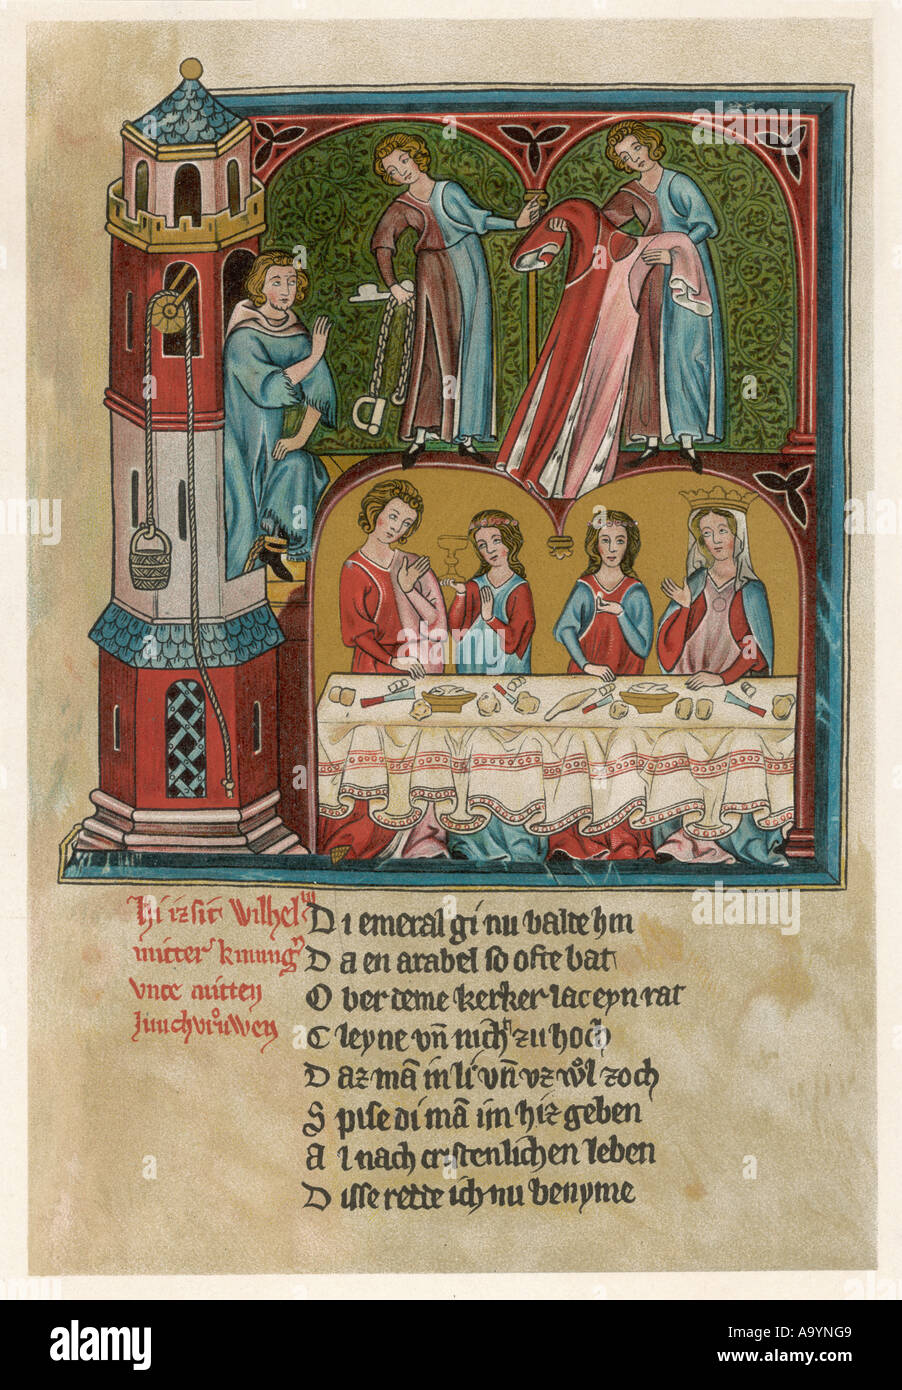 hi izsit Wilhel
mitter kunung^n
vnte mitten
Junchvrouwen
Di emeral gi nu balte hin
Da en arabel so ofte bat
Ober deme kerker lac eyn rat
Cleyne vn̄ nicht zu hoch
Daz mā in li vn̄ vz wol zoch
Spise di mā im hiz geben
Al nach cristenlichen leben
Disse rette ich nu benyme
alamy
A9YNG9
www.alamy.com